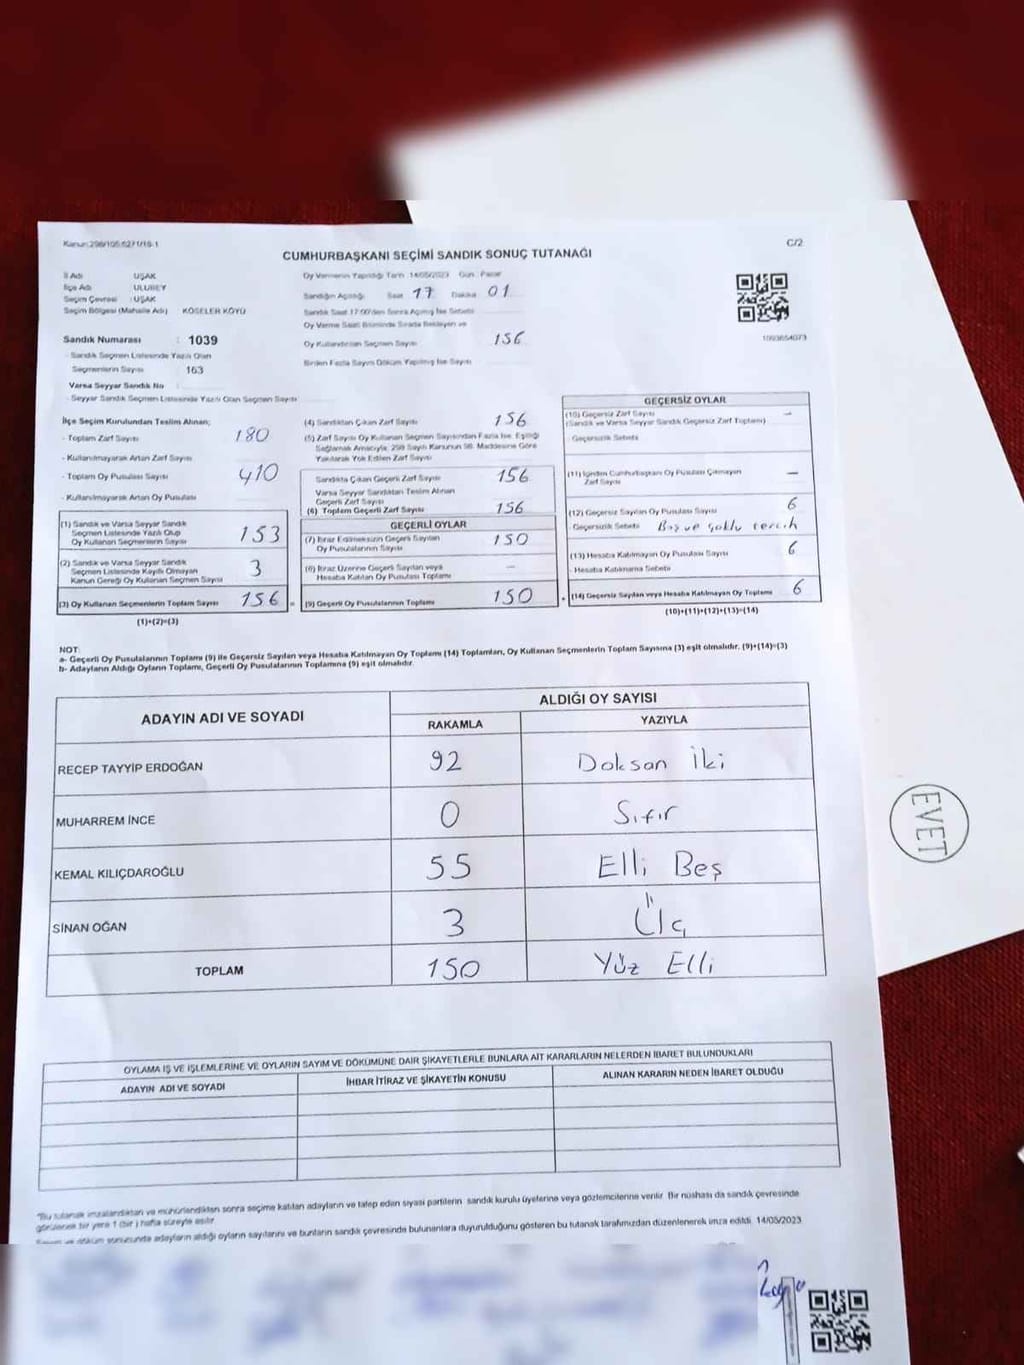 Kanun:298/105,6271/18-1
C/2
CUMHURBAŞKANI SEÇİMİ SANDIK SONUÇ TUTANAĞI
İl Adı : UŞAK
İlçe Adı : ULUBEY
Seçim Çevresi : UŞAK
Seçim Bölgesi (Mahalle Adı) : KÖSELER KÖYÜ
Sandık Numarası : 1039
- Sandık Seçmen Listesinde Yazılı Olan
Seçmenlerin Sayısı : 163
Varsa Seyyar Sandık No :
- Seyyar Sandık Seçmen Listesinde Yazılı Olan Seçmen Sayısı :
Oy Vermenin Yapıldığı Tarih : 14/05/2023 Gün : Pazar
Sandığın Açıldığı Saat 17 Dakika 01
Sandık Saat 17:00'den Sonra Açılmış İse Sebebi
Oy Verme Saati Bitiminde Sırada Bekleyen ve
Oy Kullandırılan Seçmen Sayısı 156
Birden Fazla Sayım Döküm Yapılmış İse Sayısı
1093654073
İlçe Seçim Kurulundan Teslim Alınan;
- Toplam Zarf Sayısı : 180
- Kullanılmayarak Artan Zarf Sayısı :
- Toplam Oy Pusulası Sayısı : 410
- Kullanılmayarak Artan Oy Pusulası :
(1) Sandık ve Varsa Seyyar Sandık
Seçmen Listesinde Yazılı Olup
Oy Kullanan Seçmenlerin Sayısı 153
(2) Sandık ve Varsa Seyyar Sandık
Seçmen Listesinde Kayıtlı Olmayan
Kanun Gereği Oy Kullanan Seçmen Sayısı 3
(3) Oy Kullanan Seçmenlerin Toplam Sayısı 156 =
(1)+(2)=(3)
(4) Sandıktan Çıkan Zarf Sayısı 156
(5) Zarf Sayısı Oy Kullanan Seçmen Sayısından Fazla İse, Eşitliği
Sağlamak Amacıyla, 298 Sayılı Kanunun 98. Maddesine Göre
Yakılarak Yok Edilen Zarf Sayısı
Sandıkta Çıkan Geçerli Zarf Sayısı 156
Varsa Seyyar Sandıktan Teslim Alınan
Geçerli Zarf Sayısı
(6) Toplam Geçerli Zarf Sayısı 156
GEÇERLİ OYLAR
(7) İtiraz Edilmeksizin Geçerli Sayılan
Oy Pusulalarının Sayısı 150
(8) İtiraz Üzerine Geçerli Sayılan veya
Hesaba Katılan Oy Pusulası Toplamı –
(9) Geçerli Oy Pusulalarının Toplamı 150 +
GEÇERSİZ OYLAR
(10) Geçersiz Zarf Sayısı –
(Sandık ve Varsa Seyyar Sandık Geçersiz Zarf Toplamı)
- Geçersizlik Sebebi
(11) İçinden Cumhurbaşkanı Oy Pusulası Çıkmayan
Zarf Sayısı –
(12) Geçersiz Sayılan Oy Pusulası Sayısı 6
- Geçersizlik Sebebi : Boş ve çoklu tercih
(13) Hesaba Katılmayan Oy Pusulası Sayısı 6
- Hesaba Katılmama Sebebi
(14) Geçersiz Sayılan veya Hesaba Katılmayan Oy Toplamı 6
(10)+(11)+(12)+(13)=(14)
NOT:
a- Geçerli Oy Pusulalarının Toplamı (9) ile Geçersiz Sayılan veya Hesaba Katılmayan Oy Toplamı (14) Toplamları, Oy Kullanan Seçmenlerin Toplam Sayısına (3) eşit olmalıdır. (9)+(14)=(3)
b- Adayların Aldığı Oyların Toplamı, Geçerli Oy Pusulalarının Toplamına (9) eşit olmalıdır.
ADAYIN ADI VE SOYADI
ALDIĞI OY SAYISI
RAKAMLA YAZIYLA
RECEP TAYYİP ERDOĞAN 92 Doksan İki
MUHARREM İNCE 0 Sıfır
KEMAL KILIÇDAROĞLU 55 Elli Beş
SİNAN OĞAN 3 Üç
TOPLAM 150 Yüz Elli
EVET
OYLAMA İŞ VE İŞLEMLERİNE VE OYLARIN SAYIM VE DÖKÜMÜNE DAİR ŞİKAYETLERLE BUNLARA AİT KARARLARIN NELERDEN İBARET BULUNDUKLARI
ADAYIN ADI VE SOYADI İHBAR İTİRAZ VE ŞİKAYETİN KONUSU ALINAN KARARIN NEDEN İBARET OLDUĞU
"Bu tutanak imzalandıktan ve mühürlendikten sonra seçime katılan adayların ve talep eden siyasi partilerin sandık kurulu üyelerine veya gözlemcilerine verilir. Bir nüshası da sandık çevresinde
görülecek bir yere 1 (bir) hafta süreyle asılır.
Sayım ve döküm sonucunda adayların aldığı oyların sayılarını ve bunların sandık çevresinde bulunanlara duyurulduğunu gösteren bu tutanak tarafımızdan düzenlenerek imza edildi. 14/05/2023